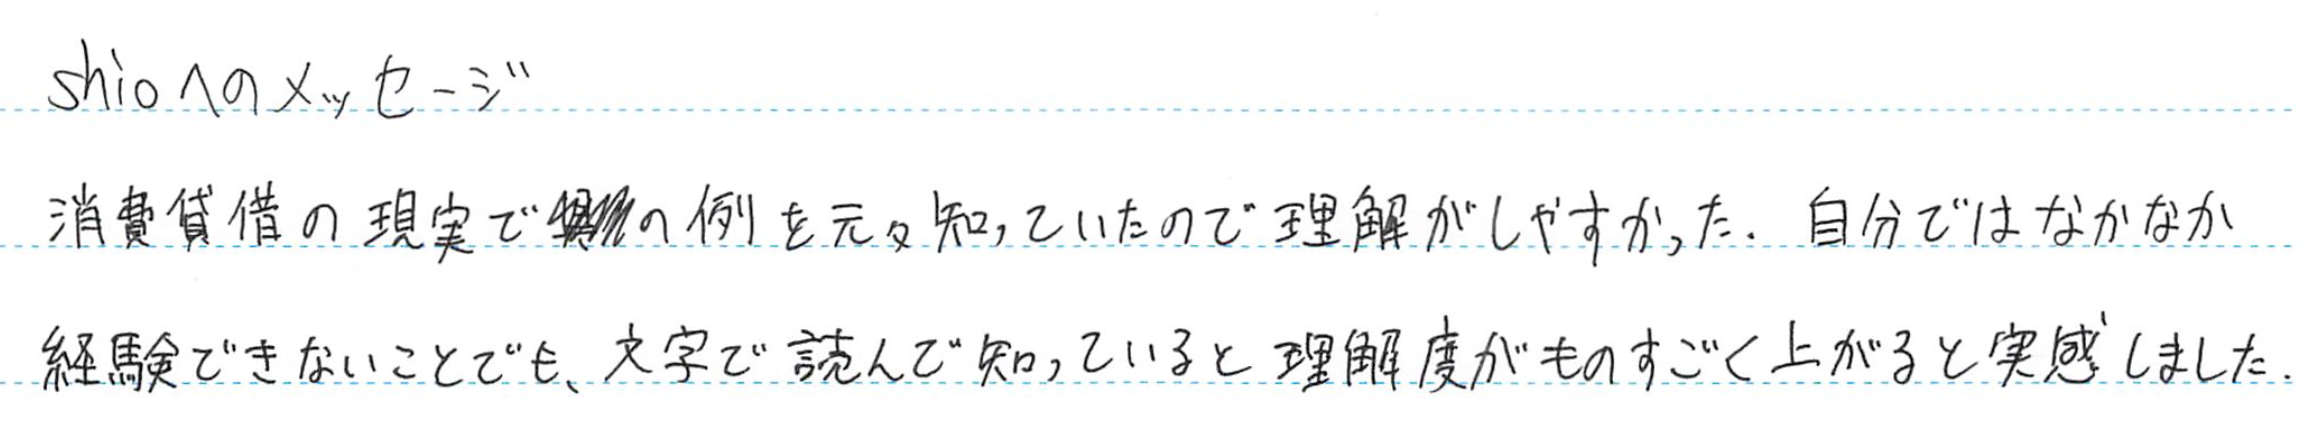 shioへのメッセージ
消費貸借の現実での例を元々知っていたので理解がしやすかった. 自分ではなかなか
経験できないことでも、文字で読んで知っていると理解度がものすごく上がると実感しました.